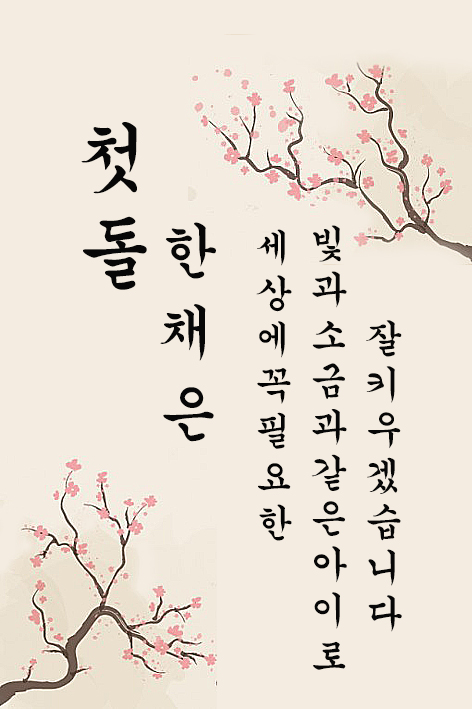 첫돌
한채은
세상에꼭필요한
빛과소금과같은아이로
잘키우겠습니다